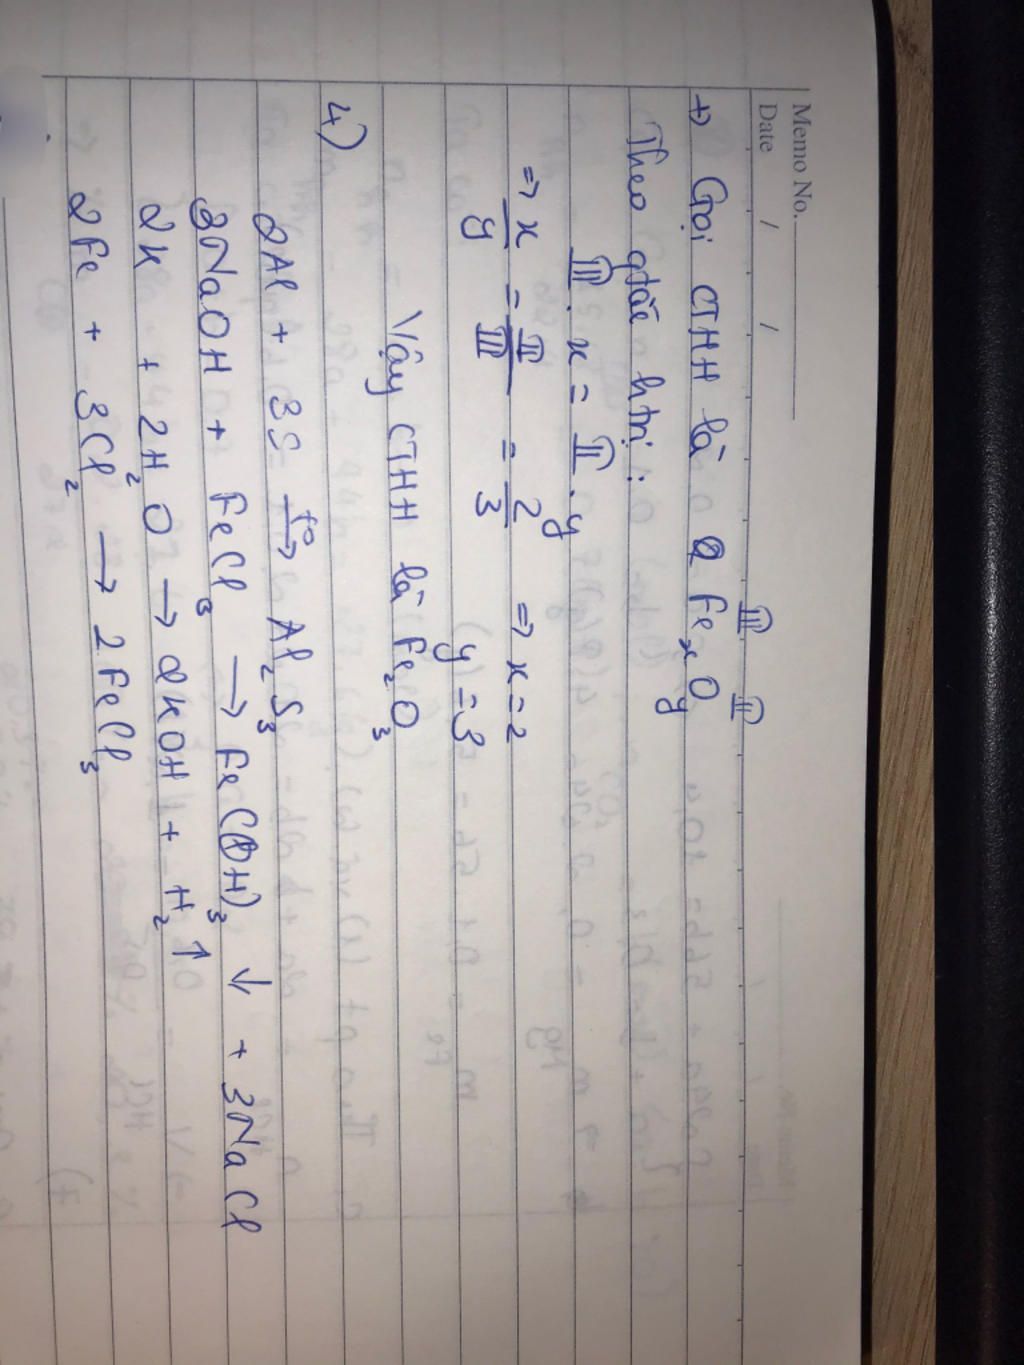 Memo No.
Date / /
+) Gọi CTHH là Fe_xO_y
III II
Theo qtắc htrị :
III . x = II . y
=> x/y = II/III = 2/3 => x = 2
y = 3
Vậy CTHH là Fe₂O₃
4)
2Al + 3S →(t°) Al₂S₃
3NaOH + FeCl₃ → Fe(OH)₃ ↓ + 3NaCl
2K + 2H₂O → 2KOH + H₂ ↑
2Fe + 3Cl₂ → 2FeCl₃